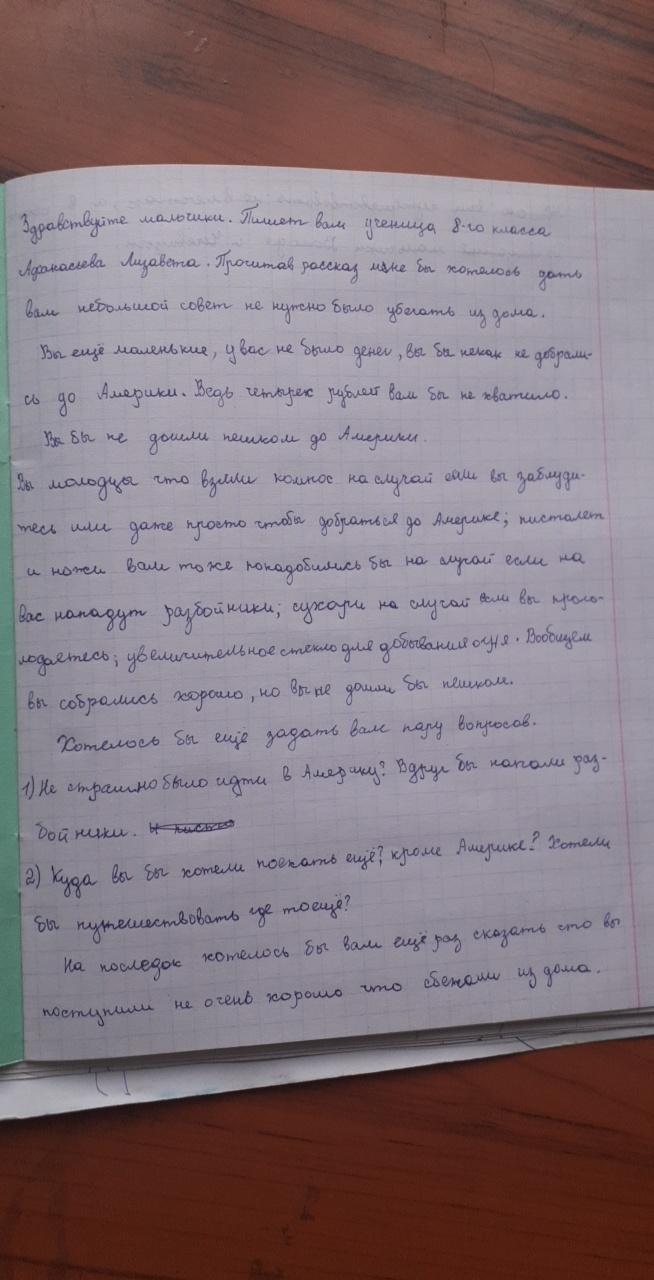 Здравствуйте мальчики. Пишет вам ученица 8-го класса
Афанасьева Лизавета. Прочитав рассказ мне бы хотелось дать
вам небольшой совет не нужно было убегать из дома.
Вы ещё маленькие, у вас не было денег, вы бы некак не добрали-
сь до Америки. Ведь четырех рублей вам бы не хватило.
Вы бы не дошли пешком до Америки.
Вы молодцы что взяли компос на случай если вы заблуди-
тесь или даже просто чтобы добраться до Америке; пистолет
и ножи вам тоже понадобились бы на случай если на
вас нападут разбойники; сухари на случай если вы прого-
лодаетесь; увеличительное стекло для добывания огня. Вообщем
вы собрались хорошо, но вы не дошли бы пешком.
Хотелось бы ещё задать вам пару вопросов.
1) Не страшно было идти в Америку? Вдруг бы напали раз-
бойники.
2) Куда вы бы хотели поехать ещё, кроме Америке? Хотели
бы путешествовать где то ещё?
На последок хотелось бы вам ещё раз сказать что вы
поступили не очень хорошо что сбежали из дома.